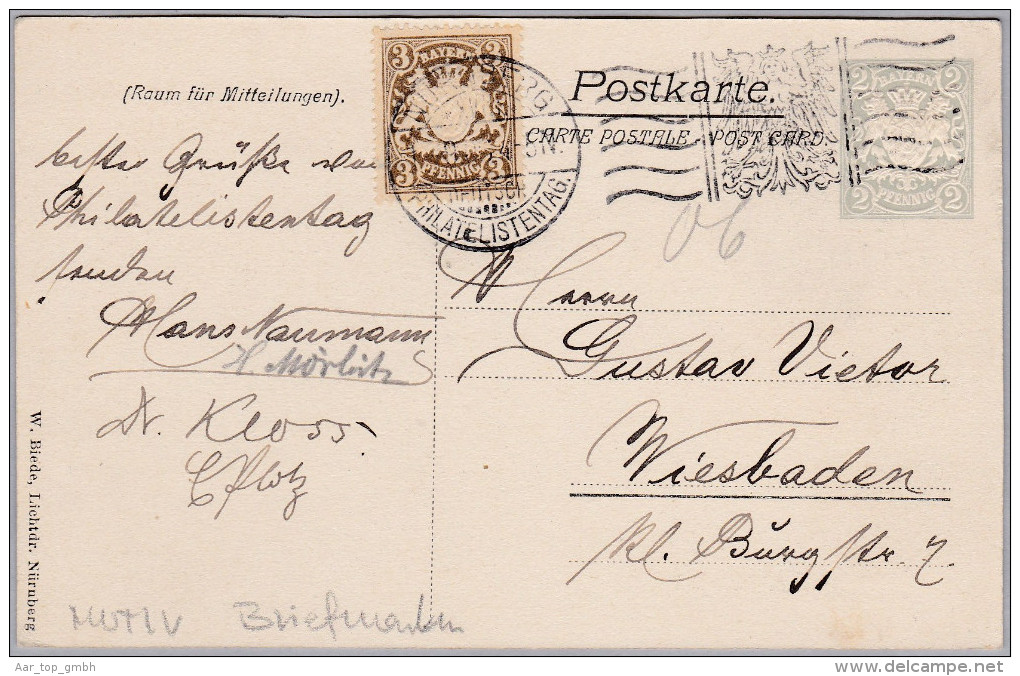 (Raum für Mitteilungen).
beste Grüße vom
Philatelistentag
senden
Hans Naumann
H Mörlitz
Dr. Kloss
W. Biede, Lichtdr. Nürnberg
MOTIV Briefmarken
3 3
BAYERN
3 3
PFENNIG
PHILATELISTENTAG.
Postkarte.
CARTE POSTALE - POST CARD.
2 2
BAYERN
2 2
PFENNIG
06
Herrn
Gustav Vietor
Wiesbaden
kl. Burgstr. 7
Aar_top_gmbh
www.delcampe.net